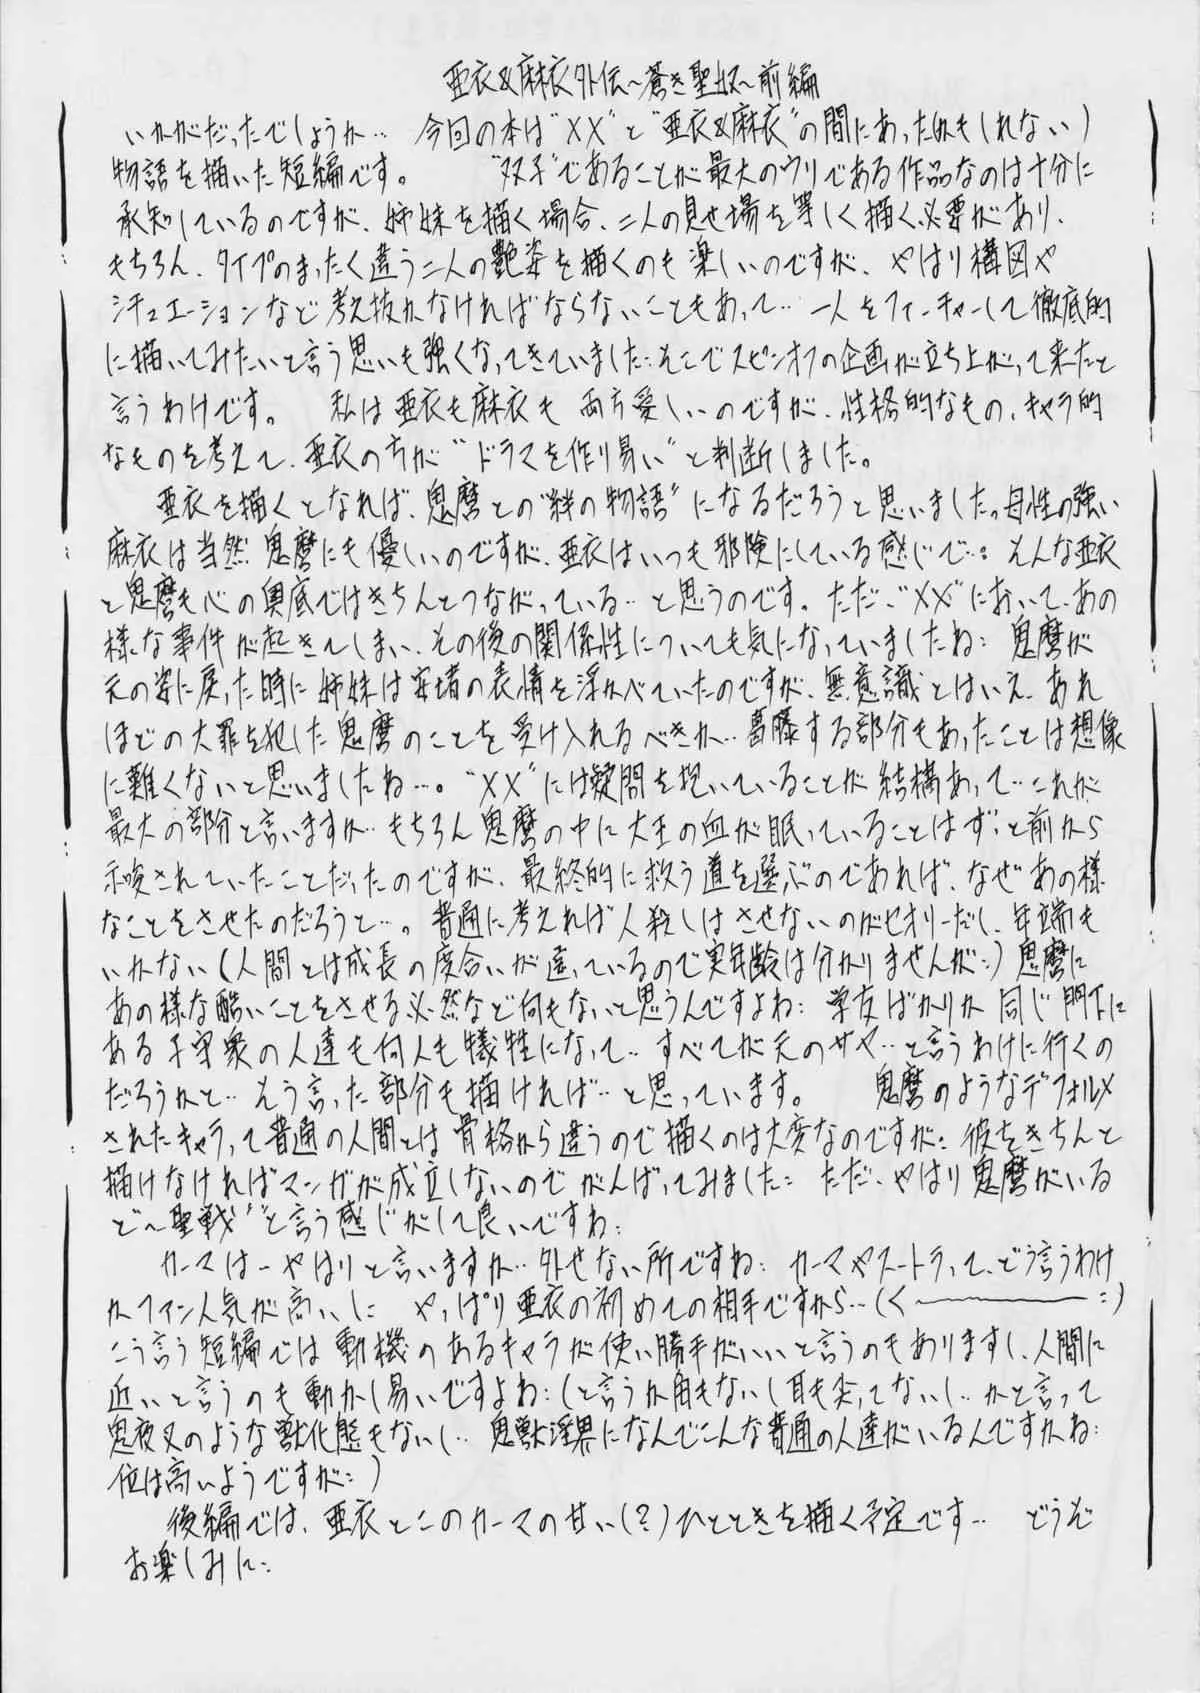 亜衣&麻衣外伝～蒼き聖奴～前編
いかがだったでしょうか… 今回の本は"XX"と"亜衣&麻衣"の間にあった(かもしれない)
物語を描いた短編です。 "双子"であることが最大のウリである作品なのは十分に
承知しているのですが、姉妹を描く場合、二人の見せ場を等しく描く必要があり、
もちろん、タイプのまったく違う二人の艶姿を描くのも楽しいのですが、やはり構図や
シチュエーションなど考え抜かなければならないこともあって… 一人をフィーチャーして徹底的
に描いてみたいと言う思いも強くなってきていました…そこでスピンオフの企画が立ち上がって来たと
言うわけです。 私は亜衣も麻衣も両方愛しいのですが、性格的なもの、キャラ的
なものを考えて、亜衣の方が"ドラマを作り易い"と判断しました。
亜衣を描くとなれば、鬼麿との"絆の物語"になるだろうと思いました。母性の強い
麻衣は当然鬼麿にも優しいのですが、亜衣はいつも邪険にしている感じで…。そんな亜衣
と鬼麿も心の奥底ではきちんとつながっている…と思うのです。ただ、"XX"において、あの
様な事件が起きてしまい、その後の関係性についても気になっていましたね… 鬼麿が
元の姿に戻った時に姉妹は安堵の表情を浮かべていたのですが、無意識とはいえ、あれ
ほどの大罪を犯した鬼麿のことを受け入れるべきか…葛藤する部分もあったことは想像
に難くないと思いましたね…。"XX"には疑問を抱いていることが結構あって…これが
最大の部分と言いますか…もちろん鬼麿の中に大王の血が眠っていることはずっと前から
示唆されていたことだったのですが、最終的に救う道を選ぶのであれば、なぜあの様
なことをさせたのだろうと…。普通に考えれば人殺しはさせないのがセオリーだし、年端も
いかない(人間とは成長の度合いが違っているので実年齢は分かりませんが…)鬼麿に
あの様な酷いことをさせる必然など何もないと思うんですよね… 学友ばかりか同じ門下に
ある子守衆の人達も何人も犠牲になって… すべてが元のサヤ…と言うわけに行くの
だろうかと…そう言った部分も描ければ…と思っています。 鬼麿のようなデフォルメ
されたキャラって普通の人間とは骨格から違うので描くのは大変なのですが… 彼をきちんと
描けなければマンガが成立しないのでがんばってみました… ただ、やはり鬼麿がいる
と"～聖戦"と言う感じがして良いですね…
カーマは―やはりと言いますか…外せない所ですね… カーマやスートラって、どう言うわけ
かファン人気が高いし やっぱり亜衣の初めての相手ですから…(く ―…)
こう言う短編では動機のあるキャラが使い勝手がいいと言うのもありますし、人間に
近いと言うのも動かし易いですよね…(と言うか角もないし耳も尖ってないし…かと言って
鬼夜叉のような獣化態もないし… 鬼獣淫界になんでこんな普通の人達がいるんですかね…
位は高いようですが…)
後編では、亜衣とこのカーマの甘い(?)ひとときを描く予定です… どうぞ
お楽しみに…